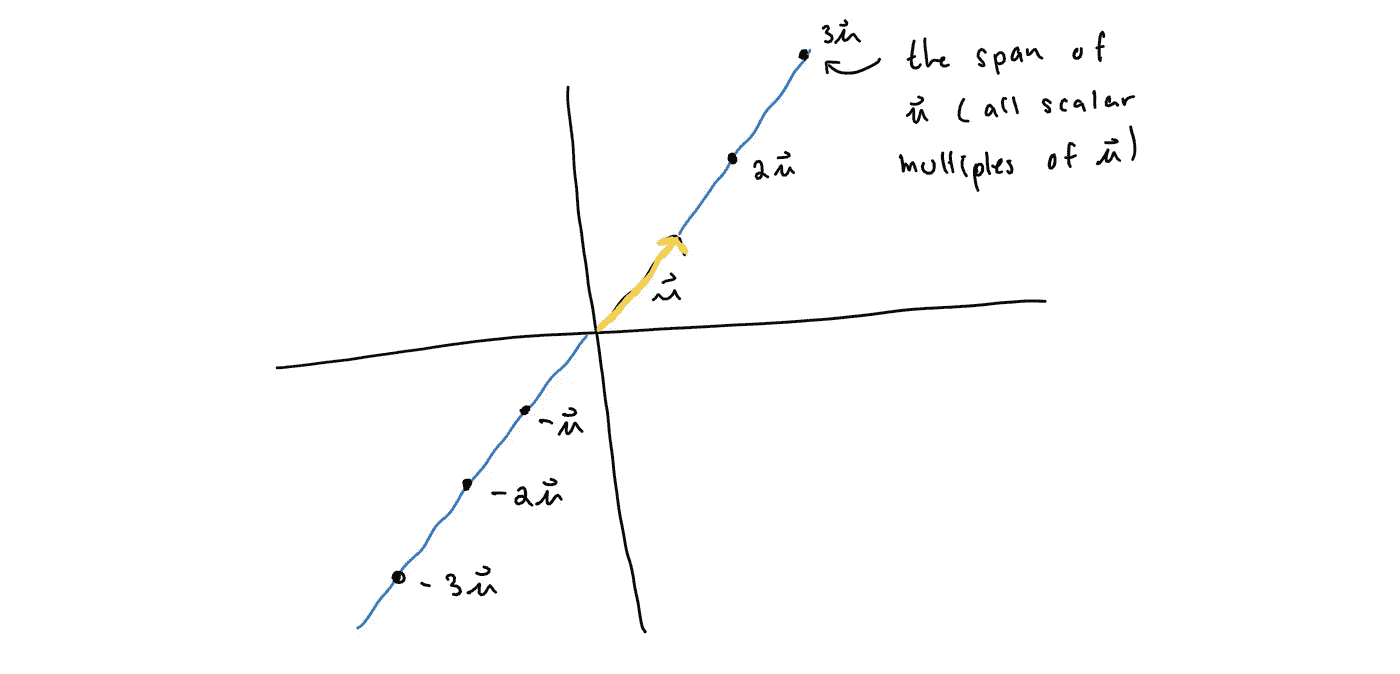 3u⃗
the span of
u⃗ (all scalar
multiples of u⃗)
2u⃗
u⃗
-u⃗
-2u⃗
-3u⃗